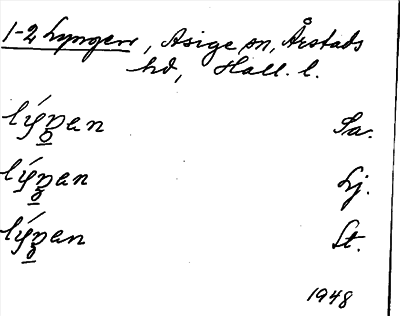 1-2 Lyngen, Asige sn, Årstads
hd, Hall. l.
lýpan Sa.
lýpan Lj.
lýpan St.
1948